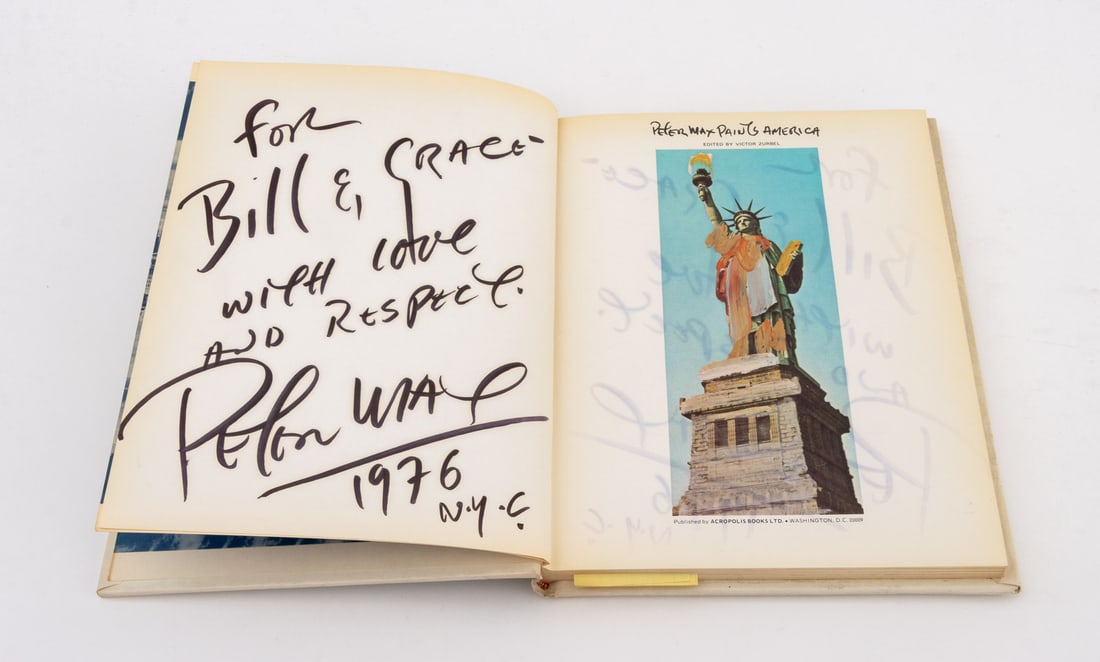 For
Bill & GRACE -
WITH love
AND RESPECT.
PETER MAX
1976
N.Y.C.
PETER MAX PAINTS AMERICA
EDITED BY VICTOR ZURBEL
Published by ACROPOLIS BOOKS LTD. • WASHINGTON, D.C. 20009